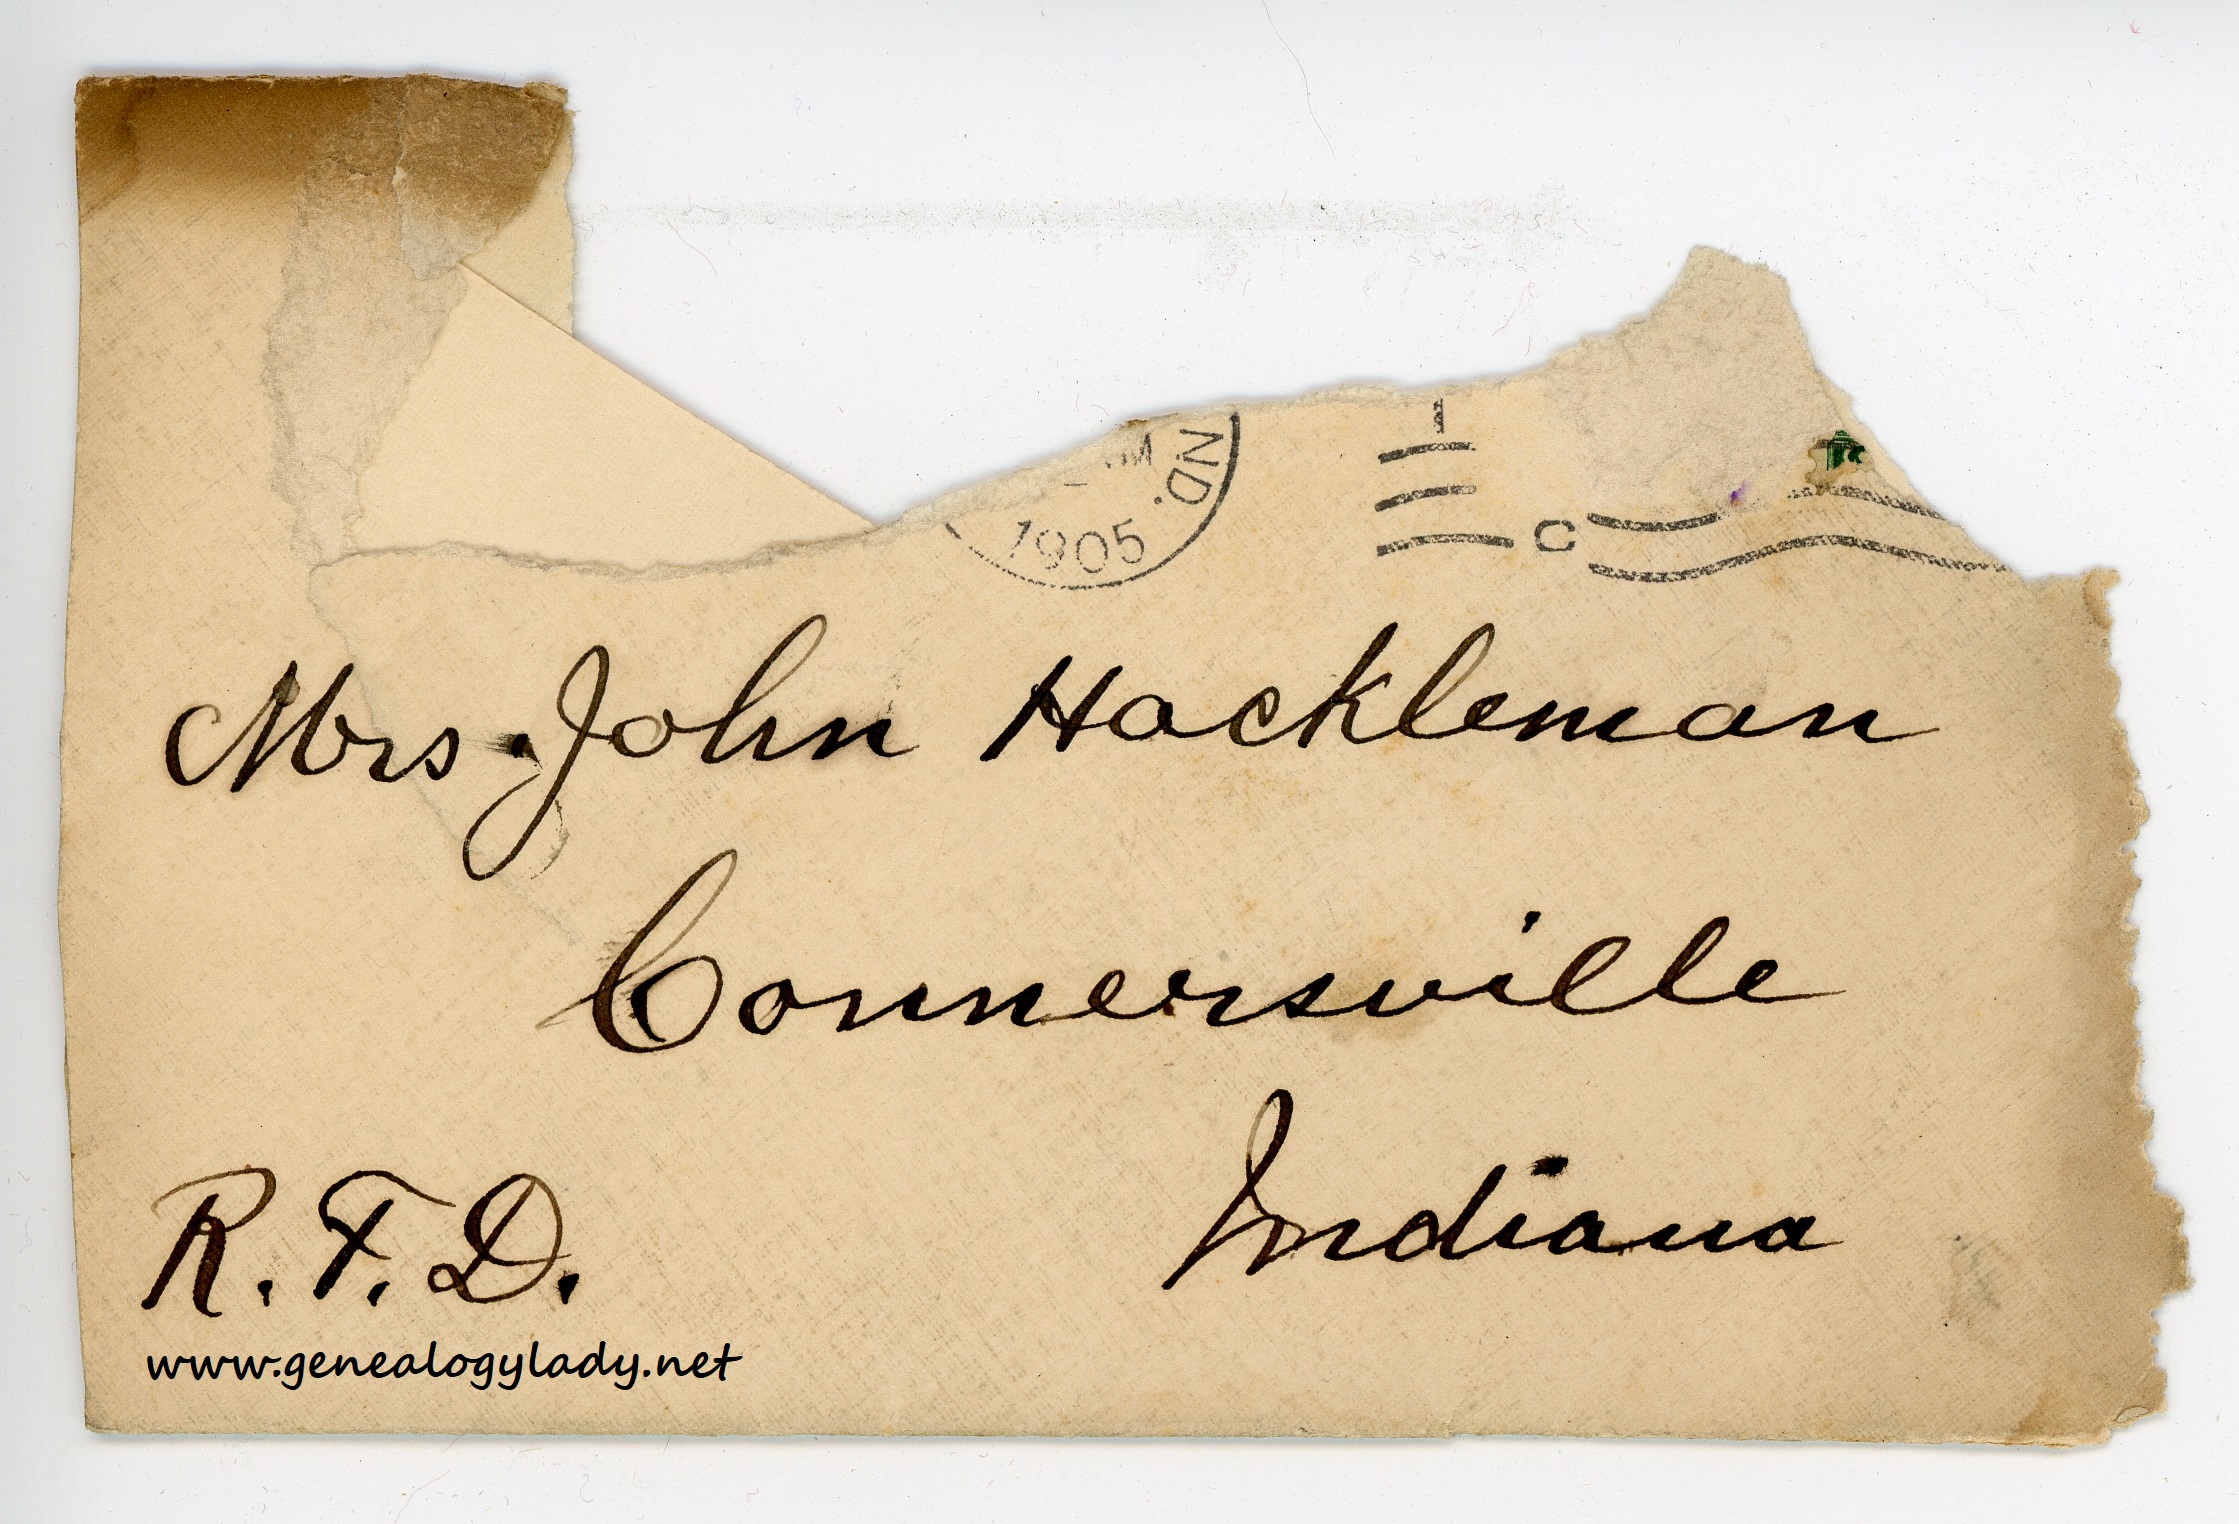 ND.
1905
C
Mrs. John Hackleman
Connersville
Indiana
R. F. D.
www.genealogylady.net